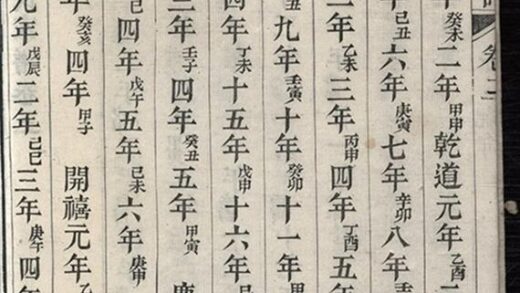 卷
癸未二年甲申乾道元年乙酉
己丑六年庚寅七年辛卯八年
年乙未三年丙申四年丁酉五年
丑九年壬寅十年癸卯十一年
四年丁未十五年戊申十六年
年壬子四年癸丑五年甲寅
巳四年戊午五年己未六年庚申
年癸亥四年甲子開禧元年乙
元年戊辰二年己巳三年庚午四年